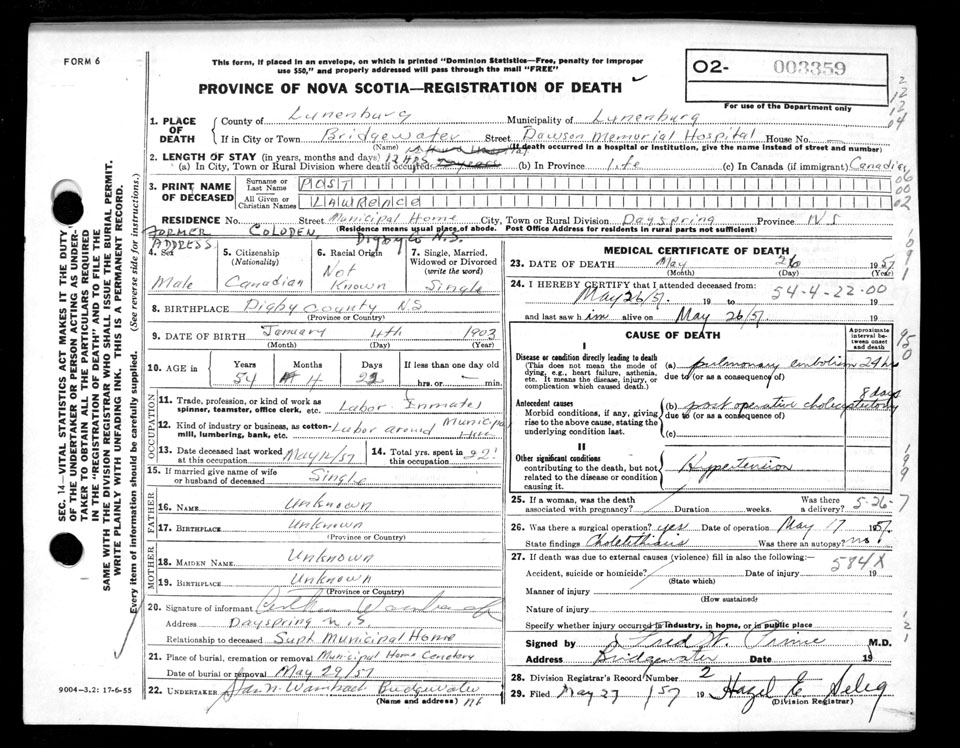 FORM 6
This form, if placed in an envelope, on which is printed "Dominion Statistics—Free, penalty for improper
use $50," and properly addressed will pass through the mail "FREE"
PROVINCE OF NOVA SCOTIA—REGISTRATION OF DEATH
O2- 003359
For use of the Department only
1. PLACE OF DEATH
County of Lunenburg Municipality of Lunenburg
If in City or Town Bridgewater Street Dawson Memorial Hospital House No.
(Name) (If death occurred in a hospital or institution, give the name instead of street and number)
2. LENGTH OF STAY (in years, months and days)
(a) In City, Town or Rural Division where death occurred 12 hrs (b) In Province life (c) In Canada (if immigrant) Canadian
3. PRINT NAME OF DECEASED
Surname or Last Name POST
All Given or Christian Names LAWRENCE
RESIDENCE No. Street Municipal Home City, Town or Rural Division Dayspring Province N S
(Residence means usual place of abode. Post Office Address for residents in rural parts not sufficient)
FORMER ADDRESS COLODEN, Digby Co N.S.
4. Sex Male
5. Citizenship (Nationality) Canadian
6. Racial Origin Not Known
7. Single, Married, Widowed or Divorced (write the word) Single
8. BIRTHPLACE Digby County N.S
(Province or Country)
9. DATE OF BIRTH January 4th 1903
(Month) (Day) (Year)
10. AGE in Years 54 Months 4 Days 22 If less than one day old hrs. or min.
OCCUPATION
11. Trade, profession, or kind of work as spinner, teamster, office clerk, etc. Labor Inmate
12. Kind of industry or business, as cotton-mill, lumbering, bank, etc. Labor around Municipal Home
13. Date deceased last worked at this occupation May 12/57
14. Total yrs. spent in this occupation 22
15. If married give name of wife or husband of deceased Single
FATHER
16. NAME Unknown
17. BIRTHPLACE Unknown
(Province or Country)
MOTHER
18. MAIDEN NAME Unknown
19. BIRTHPLACE Unknown
(Province or Country)
20. Signature of informant
Address Dayspring N.S.
Relationship to deceased Supt Municipal Home
21. Place of burial, cremation or removal Municipal Home Cemetery
Date of burial or removal May 29/57
22. UNDERTAKER Bridgewater NS
(Name and address)
9004—3.2: 17-6-55
SEC. 14—VITAL STATISTICS ACT MAKES IT THE DUTY
OF THE UNDERTAKER OR PERSON ACTING AS UNDER-
TAKER TO OBTAIN ALL THE PARTICULARS REQUIRED
IN THE "REGISTRATION OF DEATH" AND TO FILE THE
SAME WITH THE DIVISION REGISTRAR WHO SHALL ISSUE THE BURIAL PERMIT.
WRITE PLAINLY WITH UNFADING INK. THIS IS A PERMANENT RECORD.
Every item of information should be carefully supplied. (See reverse side for instructions.)
MEDICAL CERTIFICATE OF DEATH
23. DATE OF DEATH May 26 1957
(Month) (Day) (Year)
24. I HEREBY CERTIFY that I attended deceased from:
May 26/57. 19 to 54-4-22-00 19
and last saw him alive on May 26/57. 19
CAUSE OF DEATH
Approximate interval between onset and death
I
Disease or condition directly leading to death
(This does not mean the mode of dying, e.g., heart failure, asthenia, etc. It means the disease, injury, or complication which caused death.)
(a) pulmonary embolism 24 hrs
due to (or as a consequence of)
Antecedent causes
Morbid conditions, if any, giving rise to the above cause, stating the underlying condition last.
(b) post operative cholecystectomy 8 days
due to (or as a consequence of)
(c)
II
Other significant conditions
contributing to the death, but not related to the disease or condition causing it.
Hypertension
25. If a woman, was the death associated with pregnancy? Duration weeks. Was there a delivery? 5-26-7
26. Was there a surgical operation? yes Date of operation May 17 1957.
State findings Cholelithiasis Was there an autopsy? no
27. If death was due to external causes (violence) fill in also the following:— 584X
Accident, suicide or homicide? Date of injury 19
(State which)
Manner of injury
(How sustained)
Nature of injury
Specify whether injury occurred in Industry, in home, or in public place
Signed by M.D.
Address Bridgewater Date 19
28. Division Registrar's Record No. 2
29. Filed May 27 /57 19 Hazel E. Selig
(Division Registrar)